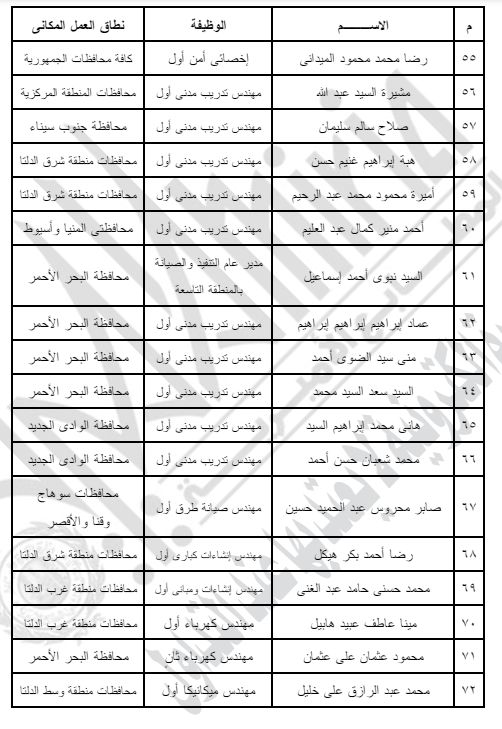 م الاســـــــم الوظيفة نطاق العمل المكانى
٥٥ رضا محمد محمود الميدانى إخصائى أمن أول كافة محافظات الجمهورية
٥٦ مشيرة السيد عبد الله مهندس تدريب مدنى أول محافظات المنطقة المركزية
٥٧ صلاح سالم سليمان مهندس تدريب مدنى أول محافظة جنوب سيناء
٥٨ هبة إبراهيم غنيم حسن مهندس تدريب مدنى أول محافظات منطقة شرق الدلتا
٥٩ أميرة محمود محمد عبد الرحيم مهندس تدريب مدنى أول محافظات منطقة شرق الدلتا
٦٠ أحمد منير كمال عبد العليم مهندس تدريب مدنى أول محافظتى المنيا وأسيوط
٦١ السيد نبوى أحمد إسماعيل مدير عام التنفيذ والصيانة
بالمنطقة التاسعة محافظة البحر الأحمر
٦٢ عماد إبراهيم إبراهيم إبراهيم مهندس تدريب مدنى أول محافظة البحر الأحمر
٦٣ منى سيد الضوى أحمد مهندس تدريب مدنى أول محافظة البحر الأحمر
٦٤ السيد سعد السيد محمد مهندس تدريب مدنى أول محافظة البحر الأحمر
٦٥ هانى محمد إبراهيم السيد مهندس تدريب مدنى أول محافظة الوادى الجديد
٦٦ محمد شعبان حسن أحمد مهندس تدريب مدنى أول محافظة الوادى الجديد
٦٧ صابر محروس عبد الحميد حسين مهندس صيانة طرق أول محافظات سوهاج
وقنا والأقصر
٦٨ رضا أحمد بكر هيكل مهندس إنشاءات كبارى أول محافظات منطقة شرق الدلتا
٦٩ محمد حسنى حامد عبد الغنى مهندس إنشاءات ومبانى أول محافظات منطقة غرب الدلتا
٧٠ مينا عاطف عبيد هابيل مهندس كهرباء أول محافظات منطقة غرب الدلتا
٧١ محمود عثمان على عثمان مهندس كهرباء ثان محافظة البحر الأحمر
٧٢ محمد عبد الرازق على خليل مهندس ميكانيكا أول محافظات منطقة وسط الدلتا